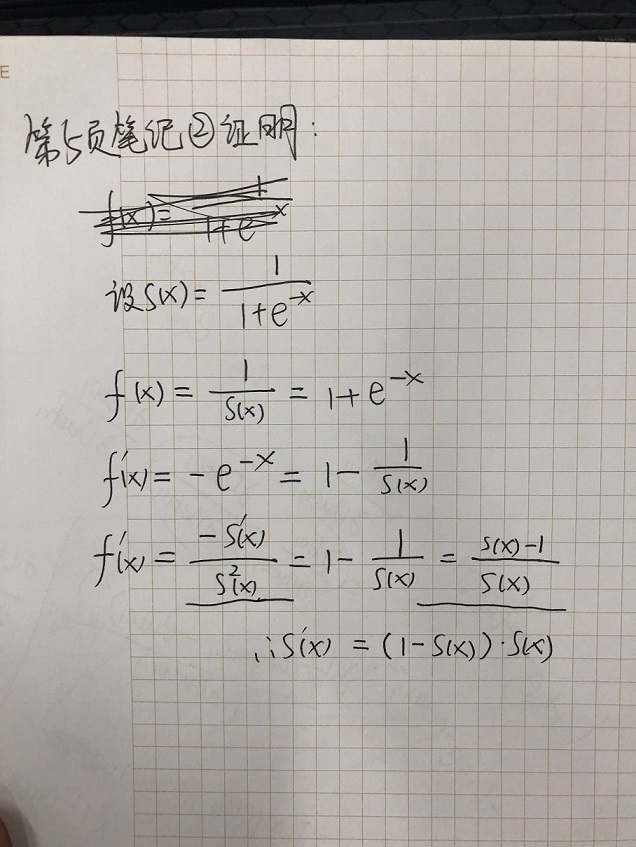 E
第5页笔记②证明:
f(x)= 1/(1+e^-x)
设S(x)= 1/(1+e^-x)
f(x) = 1/S(x) = 1+e^-x
f'(x) = -e^-x = 1- 1/S(x)
f'(x) = -S'(x)/S²(x) = 1- 1/S(x) = (S(x)-1)/S(x)
∴S'(x) = (1-S(x))·S(x)